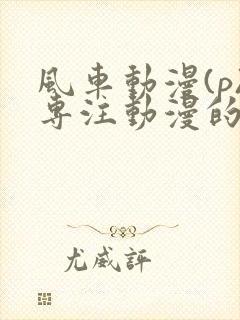 風車動漫(p
專注動漫的
尤威評